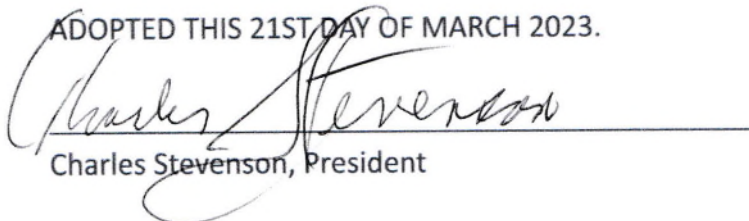 ADOPTED THIS 21ST DAY OF MARCH 2023.
Charles Stevenson
Charles Stevenson, President